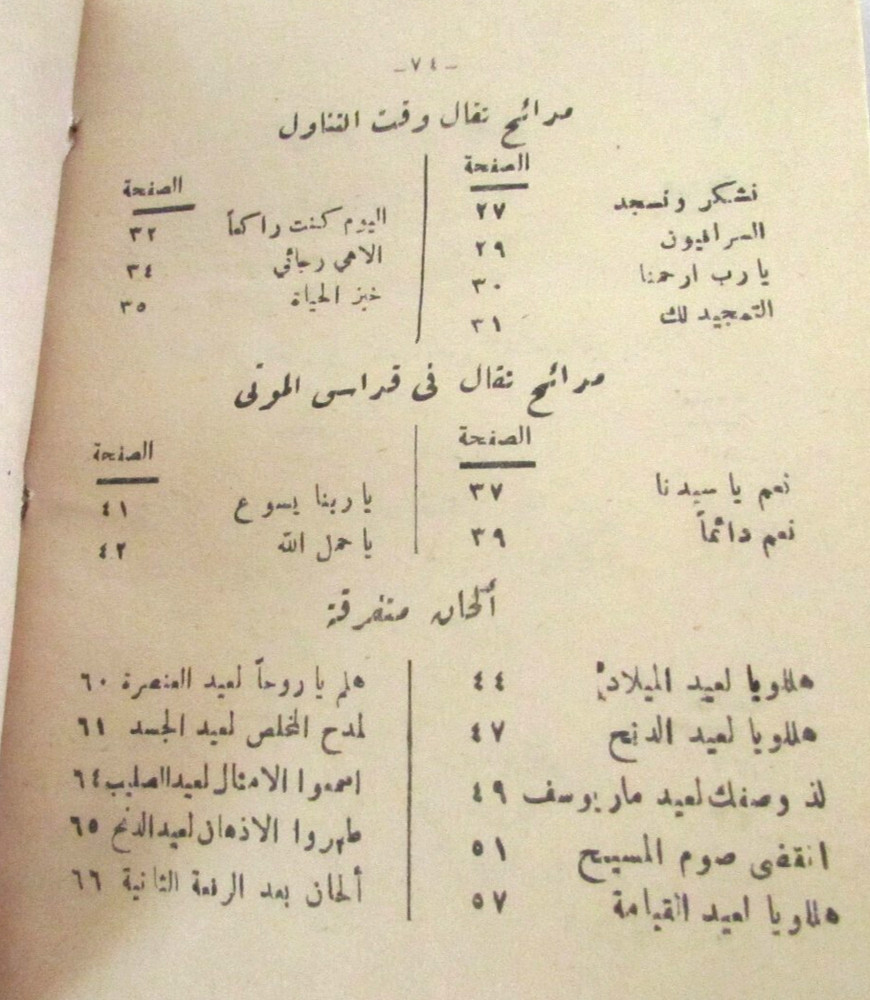 -٧٤-
مدائح تقال وقت التناول
الصفحة
نشكر ونسجد ٢٧
السرافيون ٢٩
يا رب ارحمنا ٣٠
التمجيد لك ٣١
الصفحة
اليوم كنت راكعاً ٣٢
الاهي رجائي ٣٤
خبز الحياة ٣٥
مدائح تقال في قداس الموتى
الصفحة
نعم يا سيدنا ٣٧
نعم دائماً ٣٩
الصفحة
يا ربنا يسوع ٤١
يا حمل الله ٤٢
ألحان متفرقة
هللويا لعيد الميلاد ٤٤
هللويا لعيد الدنح ٤٧
لذ وصفك لعيد مار يوسف ٤٩
انقضى صوم المسيح ٥١
هللويا لعيد القيامة ٥٧
هلم يا روحاً لعيد العنصرة ٦٠
لمدح المخلص لعيد الجسد ٦١
اسمعوا الامثال لعيد الصليب ٦٤
طهروا الاذهان لعيد الدنح ٦٥
ألحان بعد الرفعة الثانية ٦٦